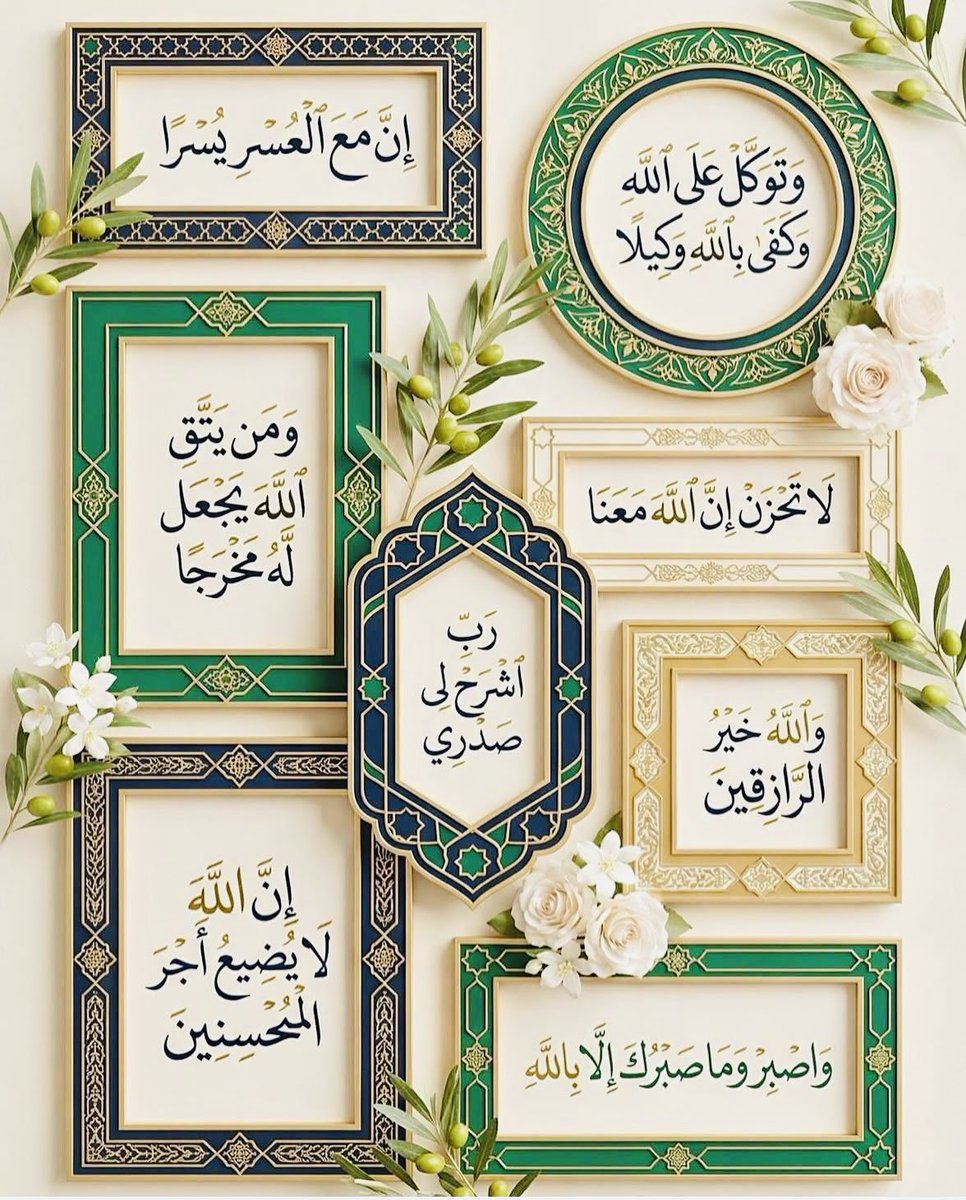 إِنَّ مَعَ ٱلْعُسْرِ يُسْرًا
وَتَوَكَّلْ عَلَى ٱللَّهِ
وَكَفَىٰ بِٱللَّهِ وَكِيلًا
وَمَن يَتَّقِ
ٱللَّهَ يَجْعَل
لَّهُ مَخْرَجًا
لَا تَحْزَنْ إِنَّ ٱللَّهَ مَعَنَا
رَبِّ
ٱشْرَحْ لِى
صَدْرِي
وَٱللَّهُ خَيْرُ
الرَّازِقِينَ
إِنَّ اللَّهَ
لَا يُضِيعُ أَجْرَ
الْمُحْسِنِينَ
وَاصْبِرْ وَمَا صَبْرُكَ إِلَّا بِاللَّهِ